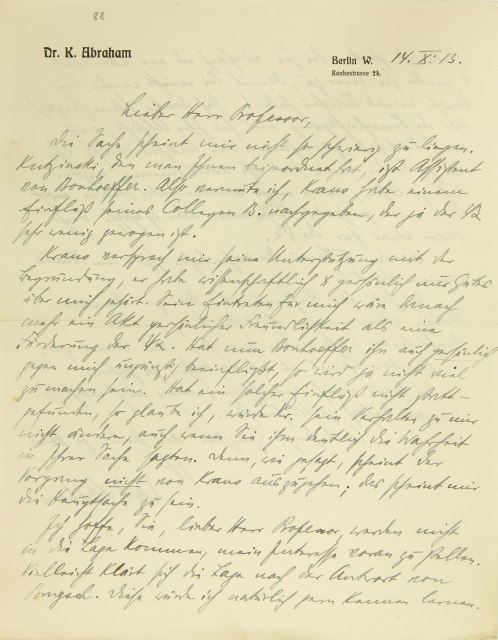 88
Dr. K. Abraham
Berlin W. 14. X. 13.
Rankestrasse 24.
Lieber Herr Professor,
die Sache scheint mir nicht so schwierig zu liegen.
Kutzinski, den man Ihnen beigeordnet hat, ist Assistent
von Bonhoeffer. Also vermute ich, Kraus habe einem
Einfluß seines Collegen B. nachgegeben, der ja der ΨA
sehr wenig gewogen ist.
Kraus versprach mir seine Unterstützung mit der
Begründung, er habe wissenschaftlich & persönlich nur Gutes
über mich gehört. Sein Eintreten für mich wäre danach
mehr ein Akt persönlicher Freundlichkeit als eine
Förderung der ΨA. Hat nun Bonhoeffer ihn auch persönlich
gegen mich ungünstig beeinflußt, so wird ja nicht viel
zu machen sein. Hat ein solcher Einfluß nicht statt-
gefunden, so glaube ich, würde Kr. sein Verhalten zu mir
nicht ändern, auch wenn Sie ihm deutlich die Wahrheit
in Ihrer Sache sagten. Denn, wie gesagt, scheint der
Vorsprung nicht von Kraus auszugehen; das scheint mir
die Hauptsache zu sein.
Ich hoffe, Sie, lieber Herr Professor, werden nicht
in die Lage kommen, mein Interesse voran zu stellen.
Vielleicht klärt sich die Lage nach der Antwort von
Brugsch. Diese würde ich natürlich gern kennen lernen.